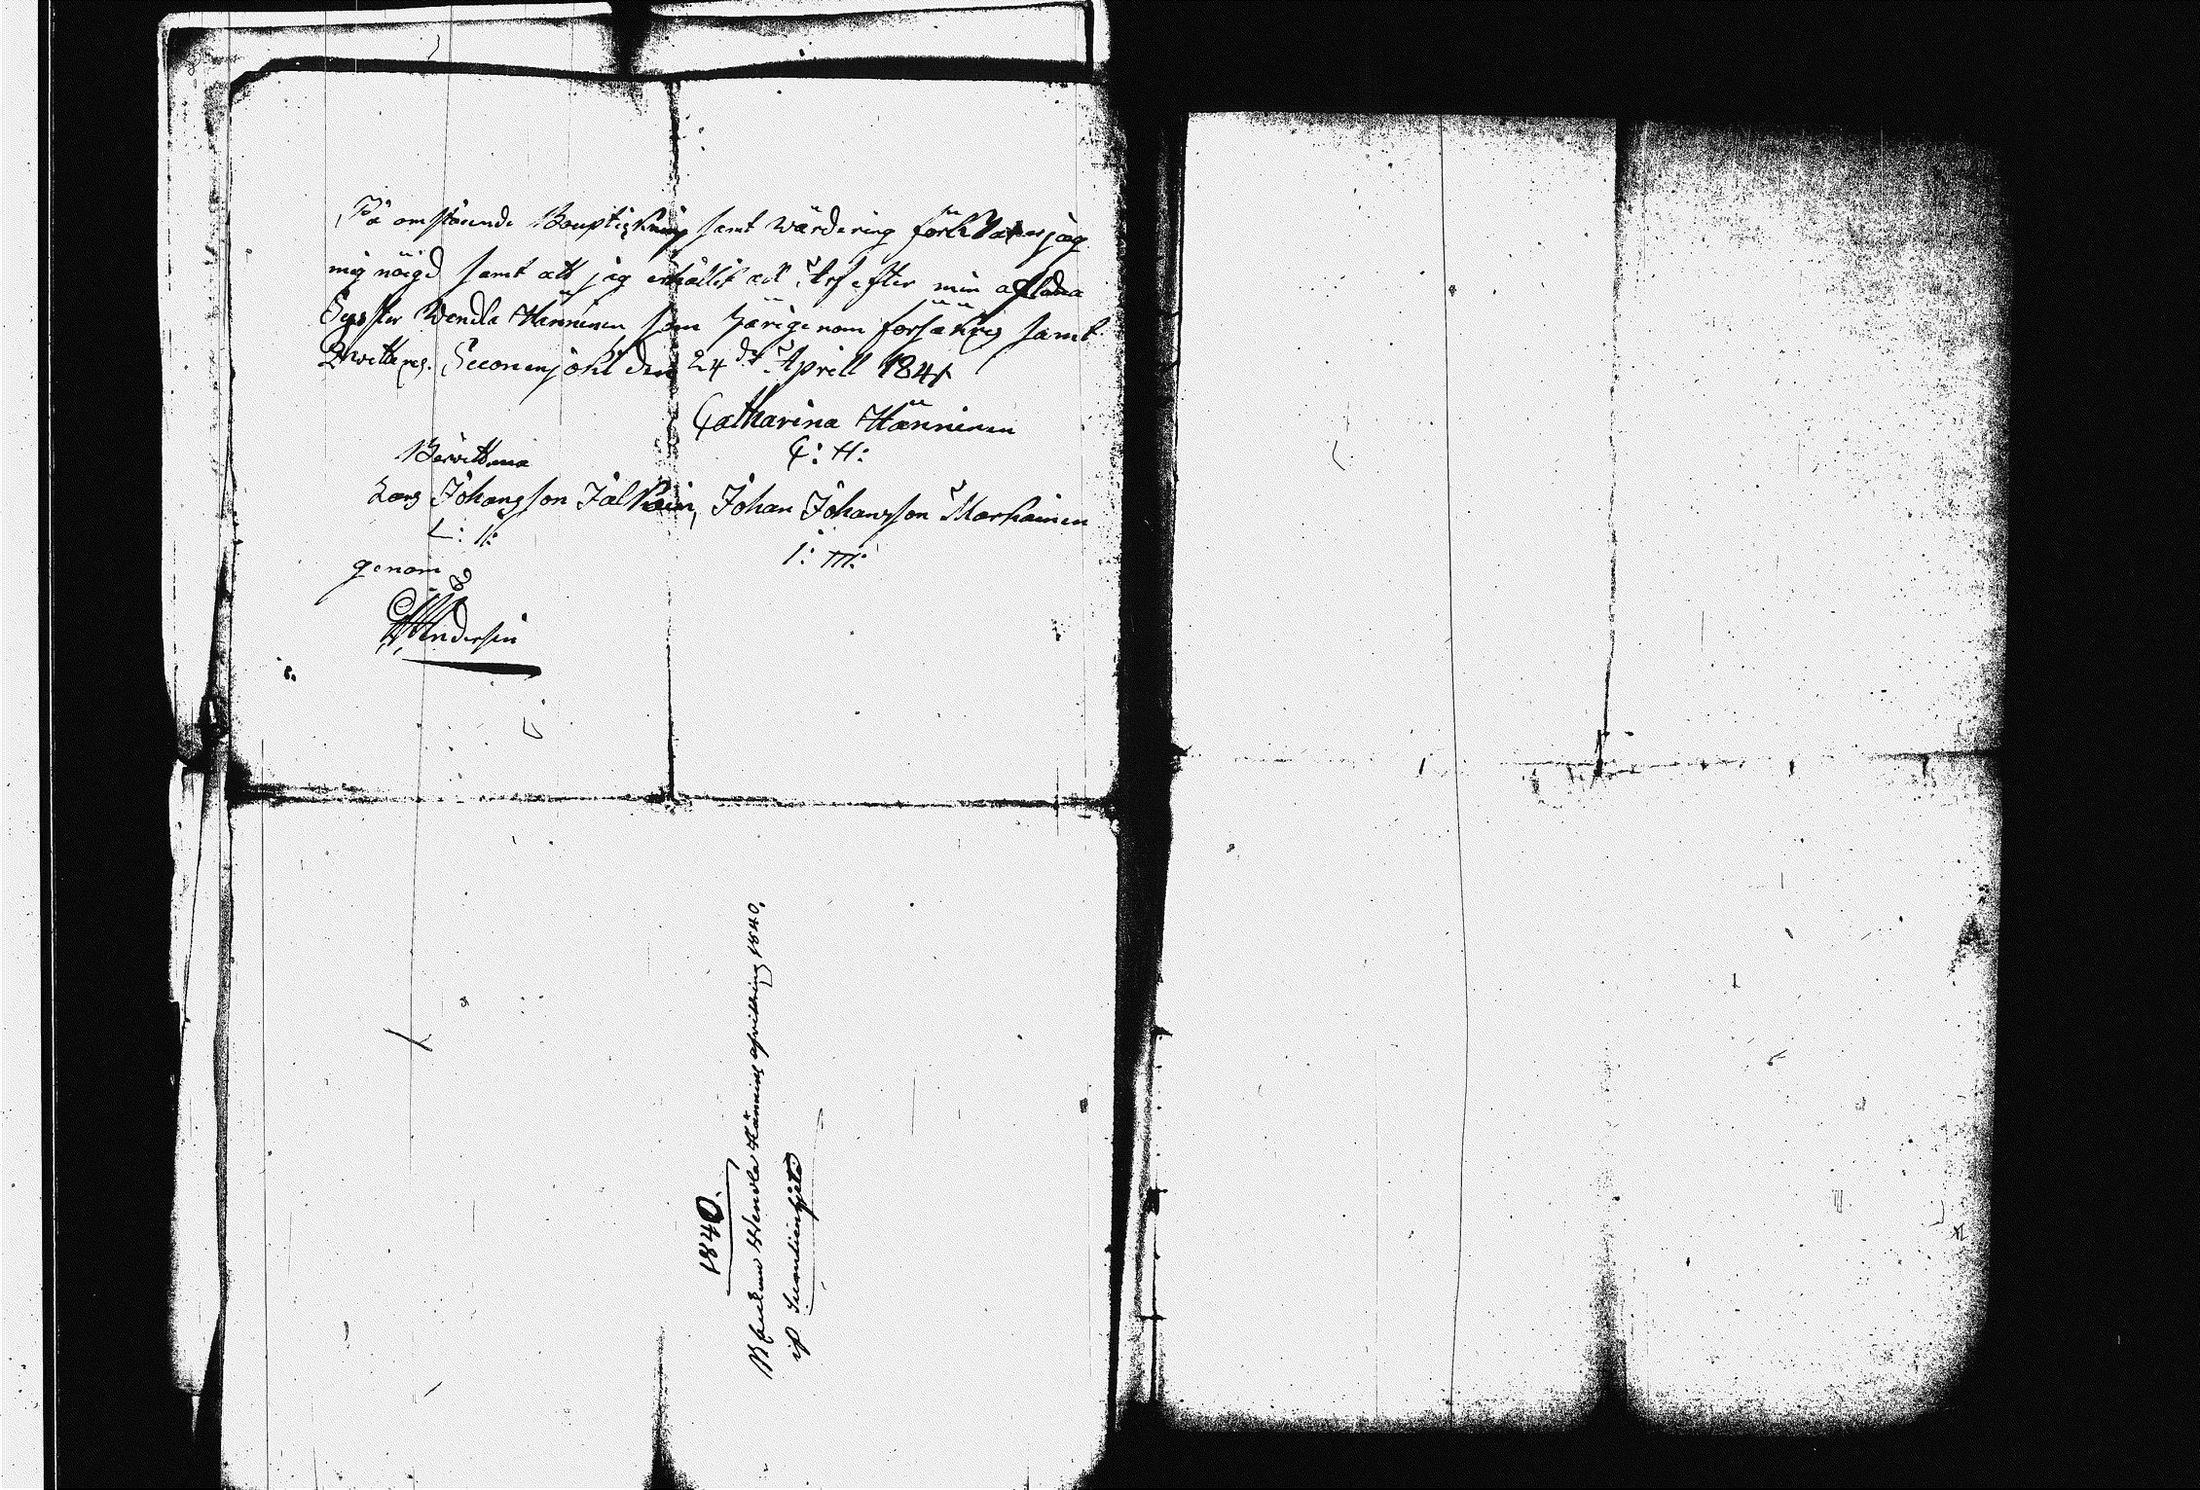 På omstående Bouptickning samt wärdering förklarar jag
mig nöigd samt att jag erhållit all Arf efter min aflidna
Syster Wendla Hänninen som härigenom försäkras samt
Qwitteras. Suonenjoki den 24de Aprill 1841
Catharina Hänninen
C: H:
Bewittna
Lars Johansson Jalkain, Johan Johansson Markainen
L: I:
I: M:
genom
Andersin
1840.
Wendla Hännines afvittring 1840.